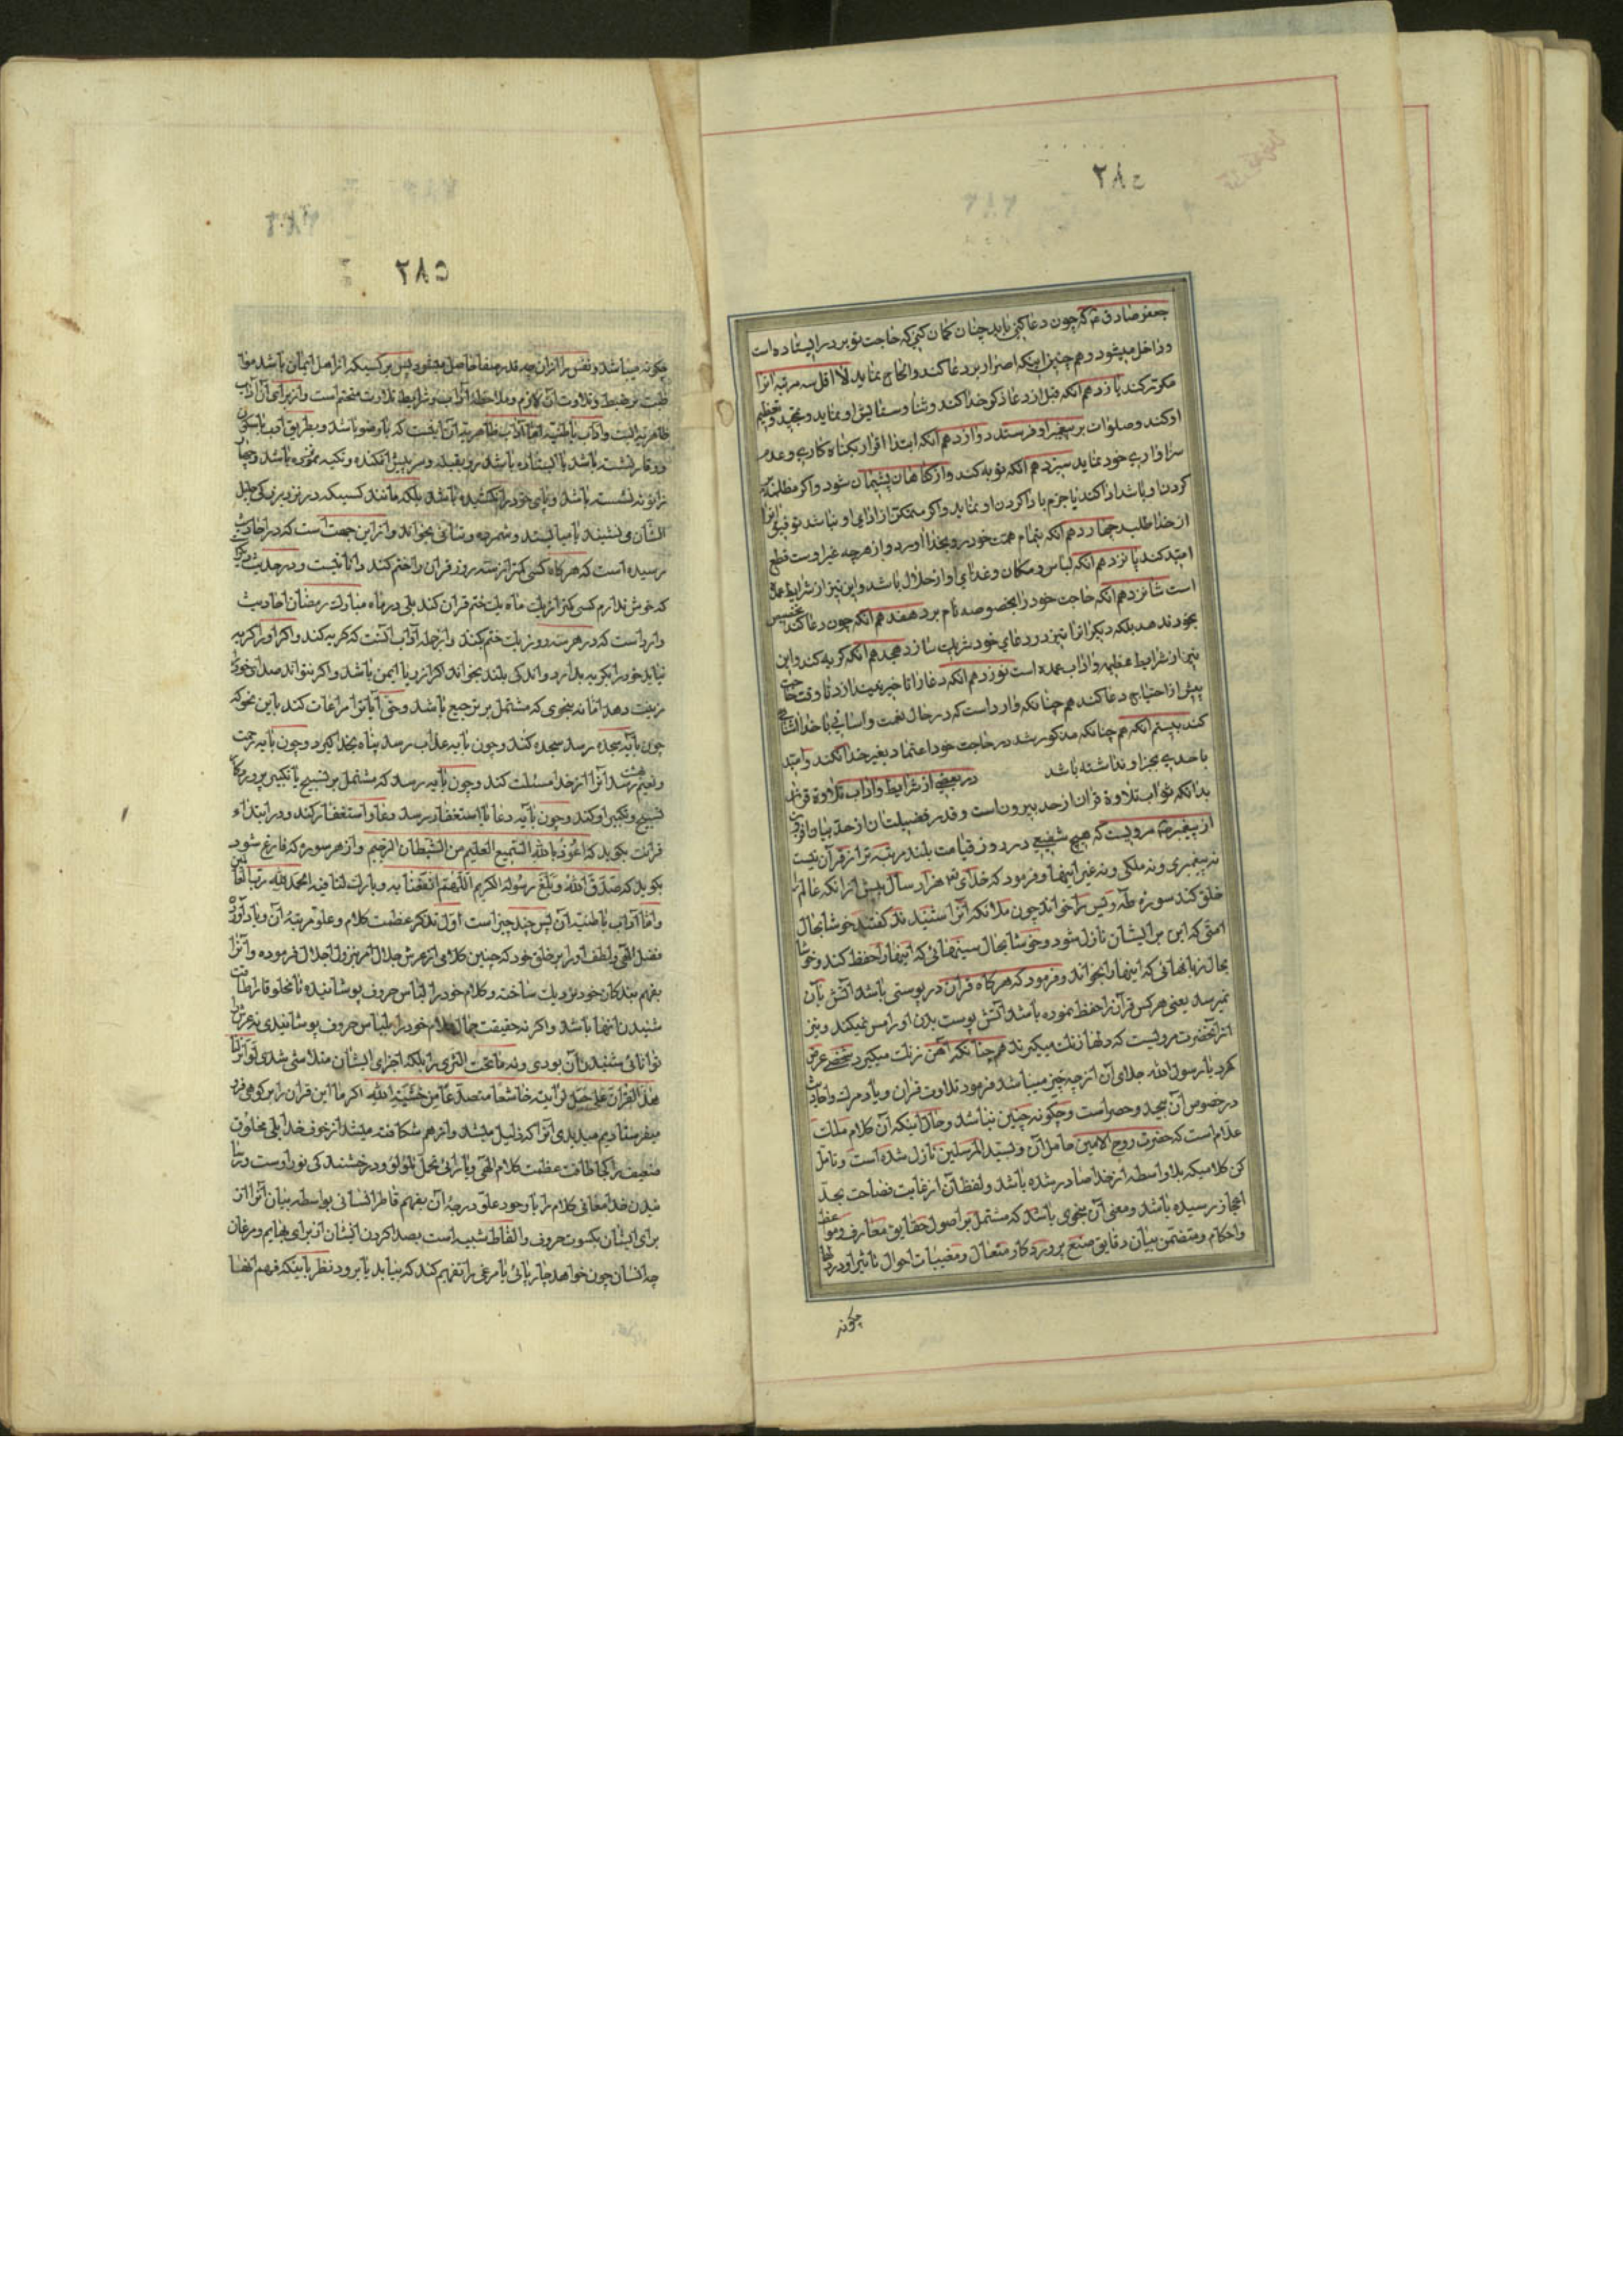 ۲۸۴
جعفر صادق ع که چون دعا کنی باید چنان کمان کنی که حاجت تو بر در ایستاده است
و داخل میشود دهم چنین اینکه اصرار بر دعا کند و الحاح نماید لا اقل سه مرتبه انرا
مکرر کند یازدهم انکه قبل از دعا ذکر خدا کند و ثنا و ستایش او نماید و تمجید و تعظیم
او کند و صلوات بر پیغمبر او فرستد دوازدهم انکه ابتدا اقرار بکناه کاری و عدم
سزاواری خود نماید سیزدهم انکه توبه کند و از کناهان پشیمان شود و اکر مظلمه بر
کردن او باشد ادا کند یا جزم با دا کردن او نماید و اکر متمکن از ادای او نباشد توفیق انرا
از خدا طلبد چهاردهم انکه بتمام همت خود رو بخدا اورد و از هر چه غیر اوست قطع
امید کند پانزدهم انکه لباس و مکان و غذای او از حلال باشد و این نیز از شرایط عمده
است شانزدهم انکه حاجت خود را بخصوصه نام برد هفدهم انکه چون دعا کند تخصیص
بخود ندهد بلکه دیکرانرا نیز در دعای خود شریک سازد هجدهم انکه کریه کند و این
نیز از شرایط عظیمه و اداب عمده است نوزدهم انکه دعا را تا خیر نیندازد تا وقت حاجت
پیش از احتیاج دعا کند هم چنانکه وارد است که در حال نعمت و اسانی با خدا اشنائی
کند بیستم انکه هم چنانکه مذکور شد در حاجت خود اعتماد بغیر خدا نکند و امید
باحدی بجز او نداشته باشد در بعضی از شرایط و اداب تلاوة قران
بدانکه ثواب تلاوة قران از حد بیرون است و قدر فضیلت ان از حد بیان افزون
از پیغمبر ص مرویست که هیچ شفیعی در روز قیامت بلند مرتبه تر از قرآن نیست
نه پیغمبری و نه ملکی و نه غیر اینها و فرمود که خدای هزار سال پیش از انکه عالم را
خلق کند سوره طه و یس را خواند چون ملائکه انرا شنیدند کفتند خوشا بحال
امتی که این بر ایشان نازل شود و خوشا بحال سینهائی که اینها را حفظ کند و خوشا
بحال زبانهائی که اینها را بخواند و فرمود که هر کاه قران در پوستی باشد آتش بآن
نمیرسد یعنی هر کس قرآن را حفظ نموده باشد آتش پوست بدن او را مس نمیکند و نیز
از انحضرت مرویست که دلها زنک میکیرند هم چنانکه آهن زنک میکیرد شخصی عرض
کرد یا رسول الله جلای آن از چه چیز میباشد فرمود تلاوت قران و یاد مرک و احادیث
در خصوص آن بیحد و حصر است و چکونه چنین نباشد و حال اینکه آن کلام ملک
علام است که حضرت روح الامین حامل آن و بسید المرسلین نازل شده است و تامل
کن کلامیکه بلا واسطه از خدا صادر شده باشد و لفظ آن از غایت فصاحت بحد
اعجاز رسیده باشد و معنی آن بنحوی باشد که مشتمل بر اصول حقایق معارف و مواعظ
و احکام و متضمن بیان دقایق صنع پروردکار متعال و مغیبات احوال تاثیر او در دلها
چکونه
۲۸۵
چکونه میباشد و نفس را از ان چه قدر صفا حاصل میشود پس بر کسیکه از اهل ایمان باشد
طبت بر ضبط و تلاوت آن لازم و ملاحظه آداب و شرایط تلاوت متحتم است و از برای آن آداب
ظاهریه البت و آداب باطنیه اما آداب ظاهریه ان اینست که با وضو باشد و بطریق ادب با سکون
و وقار نشسته باشد یا ایستاده باشد رو بقبله و سر پیش افکنده و تکیه ننموده باشد و
زانو نه نشسته باشد و پای خود را نکشیده باشد بلکه مانند کسیکه در نزد بزرکی جلیل
الشان می نشیند یا میایستد و شمرده و بتأنی بخواند و از این جهت است که در احادیث
رسیده است که هر کاه کسی کمتر از سه روز قران را ختم کند دانا نیست و در حدیث دیکر
که خوش ندارم کسی کمتر از یک ماه یک ختم قران کند بلی در ماه مبارک رمضان احادیث
وارد است که در هر سه روز یک ختم کند و از جمله آداب آنست که کریه کند و اکر او را کریه
نیاید خود را بکریه بدارد و اندکی بلند بخواند اکر از ریا ایمن باشد و اکر بتواند صدای خود را
زینت دهد اما نه بنحوی که مشتمل بر ترجیع باشد و حق آیاترا مراعات کند باین نحو که
چون بآیه سجده رسد سجده کند و چون بآیه عذاب رسد پناه بخدا کیرد و چون بآیه رحمت
و نعیم بهشت رسد آنرا از خدا مسئلت کند و چون بآیه رسد که مشتمل بر تسبیح یا تکبیر پروردکار
تسبیح و تکبیر او کند و چون بآیه دعا یا استغفار رسد دعا و استغفار کند و در ابتداء
قرائت بکوید که اعوذ بالله السمیع العلیم من الشیطان الرجیم و از هر سوره که فارغ شود
بکوید که صدق الله و بلغ رسوله الکریم اللهم انفعنا به و بارک لنا فیه الحمد لله رب العالمین
و اما آداب باطنیه ان پس چند چیز است اول تذکر عظمت کلام و علو مرتبه آن و یاد آوردن
فضل الهی و لطف او را بر خلق خود که چنین کلامی از عرش جلال امر بنزول اجلال فرموده و آنرا
بفهم بندکان خود نزدیک ساخته و کلام خود را لباس حروف پوشانیده تا مخلوقا را طاقت
شنیدن انها باشد و اکر نه حقیقت جمال کلام خود را بلباس حروف پوشانیدی نه عرش را
توانائی شنیدن آن بودی و نه ما تحت الثری را بلکه اجزای ایشان متلاشی شدی لو انزلنا
هذا القران علی جبل لرایته خاشعا متصدعا من خشیة الله اکر ما این قران را بر کوهی فرو
میفرستادیم میدیدی آنرا که ذلیل میشد و از هم شکافته میشد از خوف خدا بلی مخلوق
ضعیف را کجا طاقت عظمت کلام الهی و یارائی تحمل تلؤلؤ و درخشندکی نور اوست و
شدن خدا معانی کلام را با وجود علو درجه آن بفهم قاصر انسانی بواسطه بیان آنرا از
برای ایشان بکسوت حروف و الفاظ شبیه است بصدا کردن انسان از برای بهایم و مرغان
چه انسان چون خواهد چارپائی یا مرغی را تفهیم کند که بیاید یا برود نظر باینکه فهم